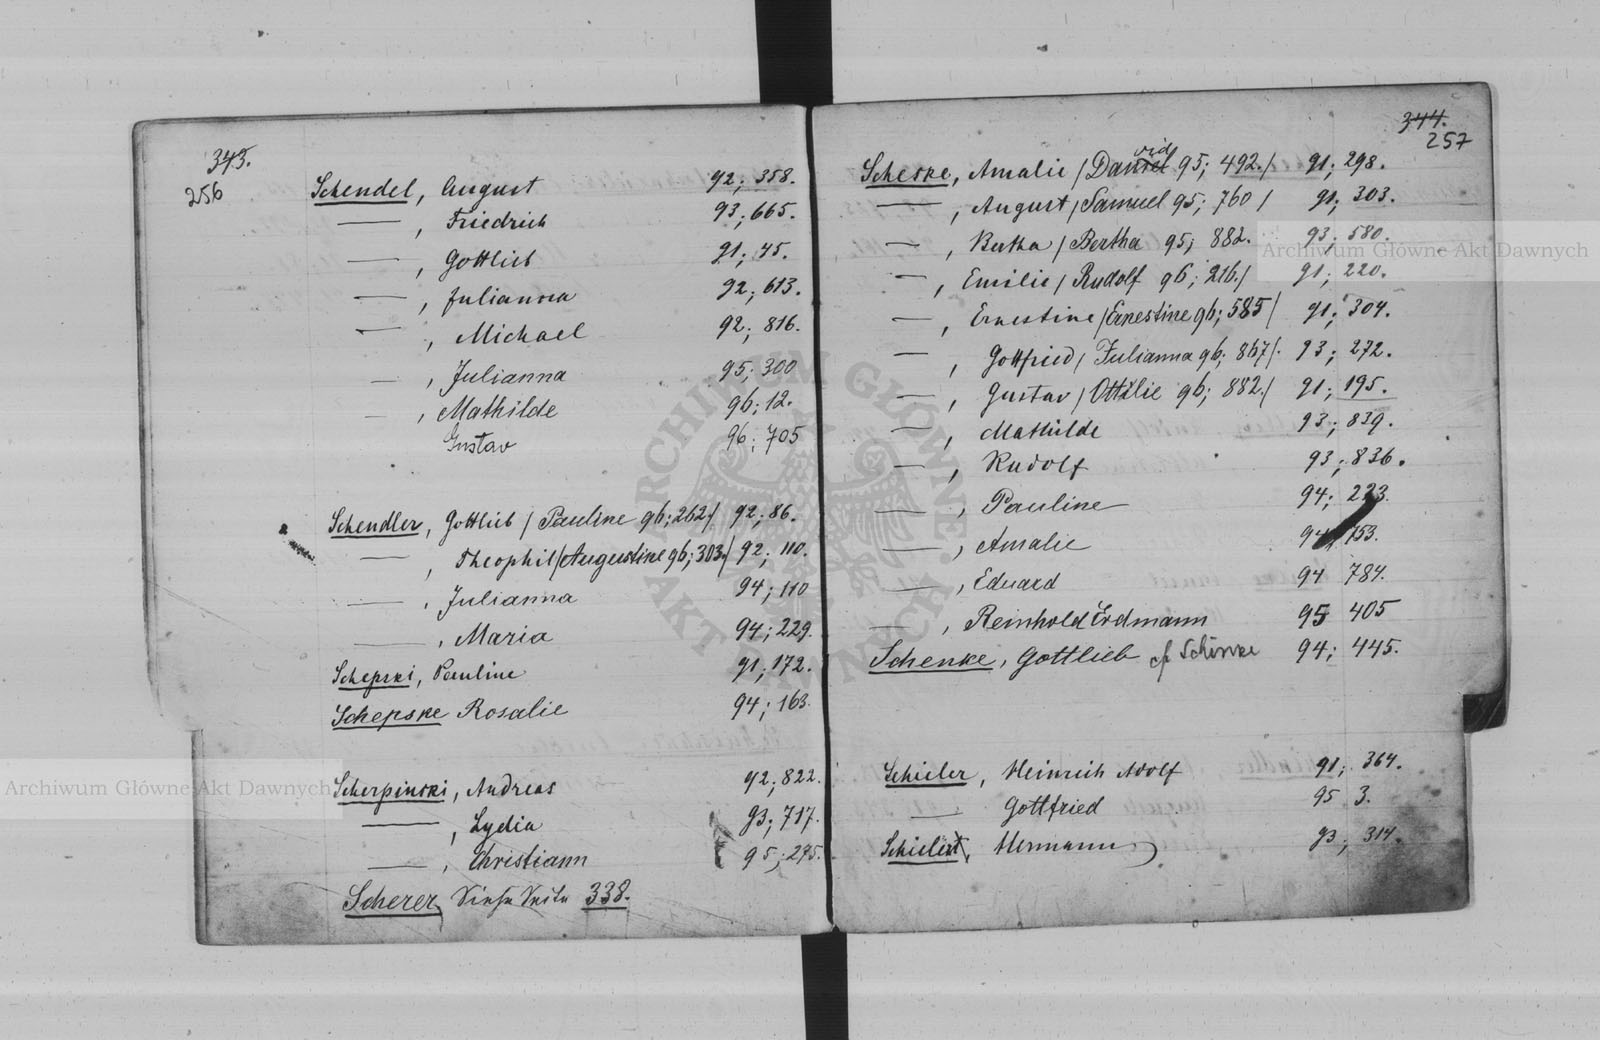 343.
256
Schendel, August 92; 358.
—, Friedrich 93; 665.
—, Gottlieb 91; 45.
—, Julianna 92; 613.
—, Michael 92; 816.
—, Julianna 95; 300
—, Mathilde 96; 12.
Gustav 96; 705
Schendler, Gottlieb / Pauline 96; 262/ 92; 86.
—, Theophil / Augustine 96; 303./ 92; 110.
—, Julianna 94; 110
—, Maria 94; 229.
Schepski, Pauline 91; 172.
Schepske Rosalie 94; 163.
Scherpinski, Andreas 92; 822.
—, Lydia 93; 717.
—, Christiann 95; 295.
Scherer, Siehe Seite 338.
344.
257
Scheske, Amalie / David 95; 492./ 91; 298.
—, August / Samuel 95; 760 / 91; 303.
—, Bertha / Bertha 95; 882. 93; 580.
—, Emilie / Rudolf 96; 216./ 91; 220.
—, Ernestine / Ernestine 96; 585 / 91; 304.
—, Gottfried / Julianna 96; 867/. 93; 272.
—, Gustav / Ottilie 96; 882./ 91; 195.
—, Mathilde 93; 839.
—, Rudolf 93; 836.
—, Pauline 94; 223.
—, Amalie 94 753.
—, Eduard 94 784.
—, Reinhold Erdmann 95 405
Schenke, Gottlieb cf Schinke 94; 445.
Schieler, Heinrich Adolf 91; 364.
— Gottfried 95 3.
Hermann 93; 314.
Archiwum Główne Akt Dawnych
Archiwum Główne Akt Dawnych
ARCHIWUM GŁÓWNE AKT DAWNYCH